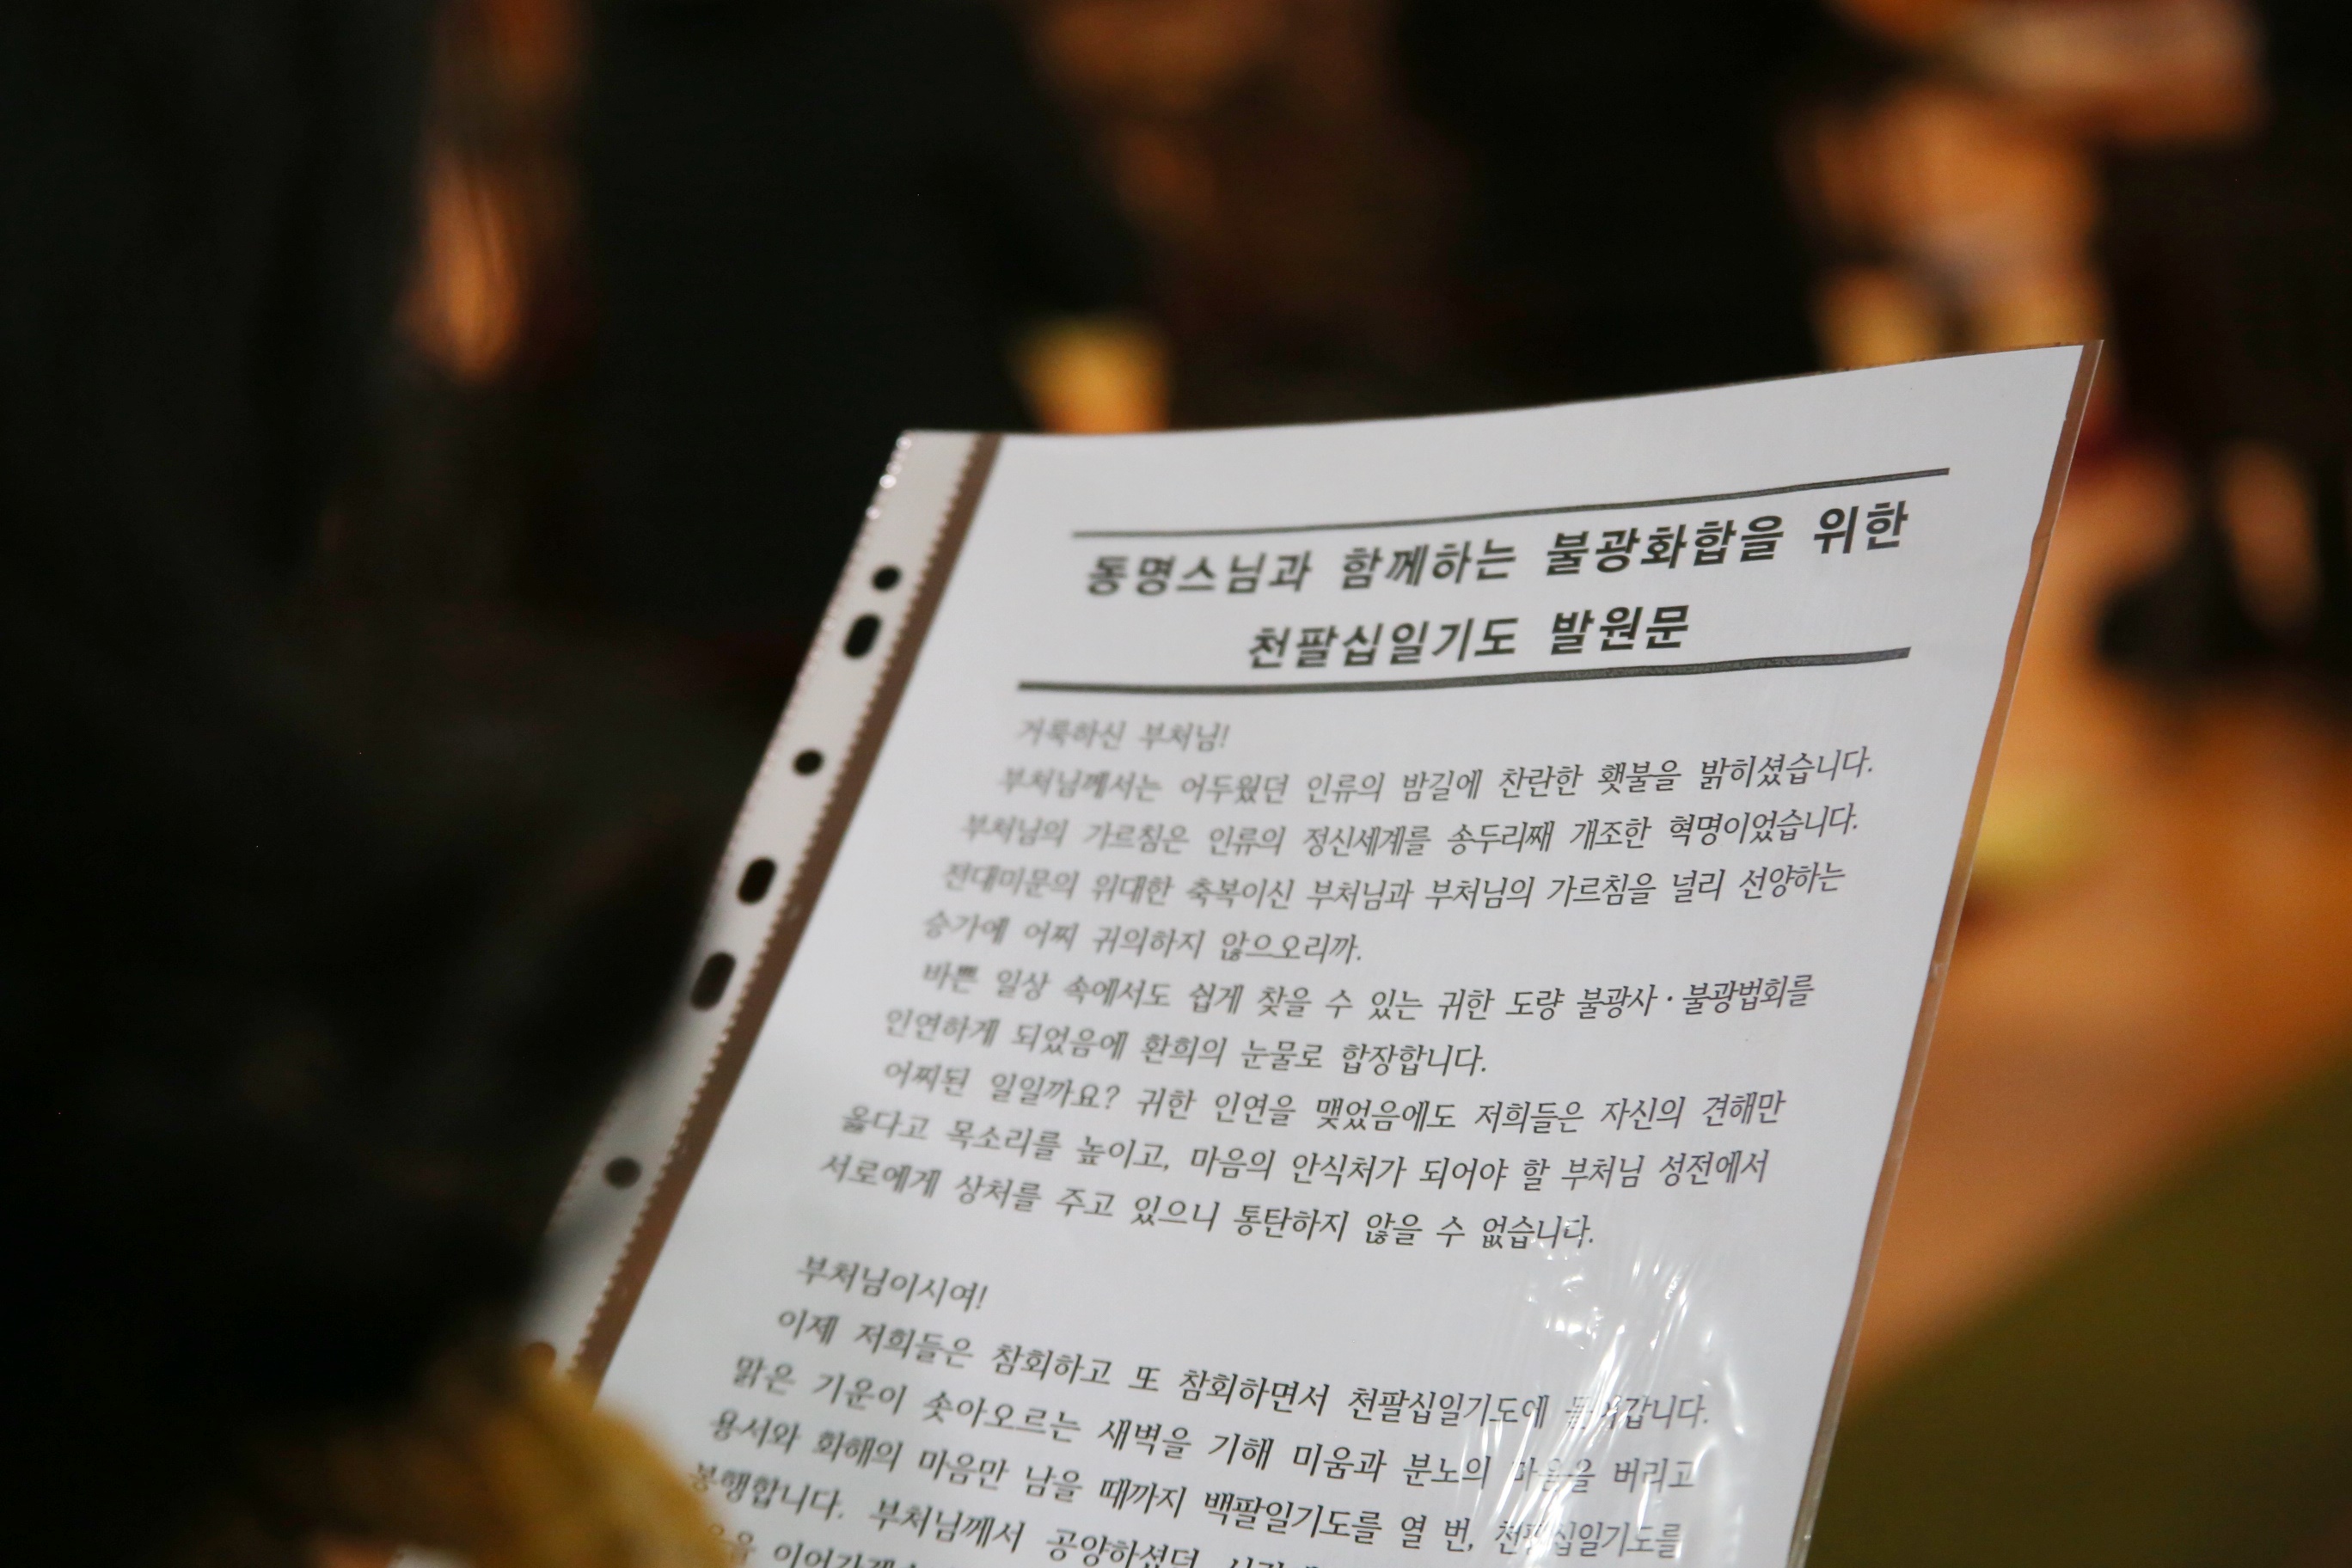 동명스님과 함께하는 불광화합을 위한
천팔십일기도 발원문
거룩하신 부처님!
부처님께서는 어두웠던 인류의 밤길에 찬란한 횃불을 밝히셨습니다.
부처님의 가르침은 인류의 정신세계를 송두리째 개조한 혁명이었습니다.
전대미문의 위대한 축복이신 부처님과 부처님의 가르침을 널리 선양하는
승가에 어찌 귀의하지 않으오리까.
바쁜 일상 속에서도 쉽게 찾을 수 있는 귀한 도량 불광사·불광법회를
인연하게 되었음에 환희의 눈물로 합장합니다.
어찌된 일일까요? 귀한 인연을 맺었음에도 저희들은 자신의 견해만
옳다고 목소리를 높이고, 마음의 안식처가 되어야 할 부처님 성전에서
서로에게 상처를 주고 있으니 통탄하지 않을 수 없습니다.
부처님이시여!
이제 저희들은 참회하고 또 참회하면서 천팔십일기도에 들어갑니다.
맑은 기운이 솟아오르는 새벽을 기해 미움과 분노의 마음을 버리고
용서와 화해의 마음만 남을 때까지 백팔일기도를 열 번, 천팔십일기도를
봉행합니다. 부처님께서 공양하셨던